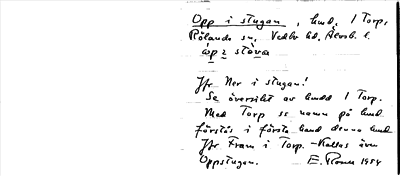 Opp i stugan, hmd. 1 Torp,
Rölanda sn, Vedbo hd, Älvsb. l.
ùp i stòva
Jfr Ner i stugan!
Se översikt av hmdd 1 Torp.
Med Torp ss namn på hmd
förstås i första hand denna hmd
Jfr Fram i Torp. - Kallas även
Oppstugan.
1954